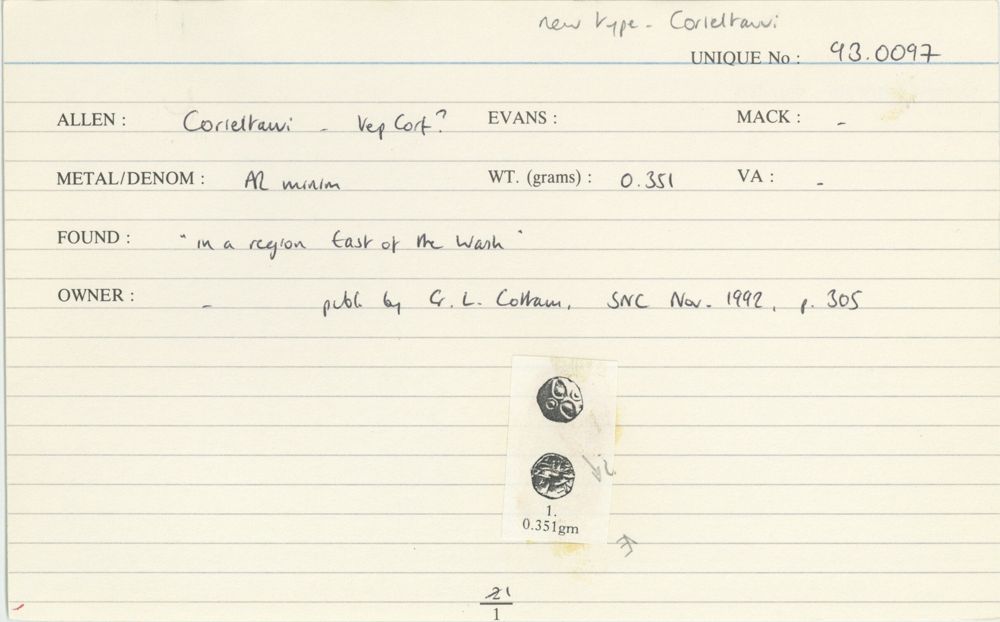 new type - Corieltauvi
UNIQUE No : 93.0097
ALLEN : Corieltauvi - Vep Corf? EVANS : MACK : -
METAL/DENOM : AR minim WT. (grams) : 0.351 VA : -
FOUND : "in a region East of the Wash"
OWNER : - publ. by G. L. Cottam, SNC Nov. 1992, p. 305
1.
0.351gm
21
1